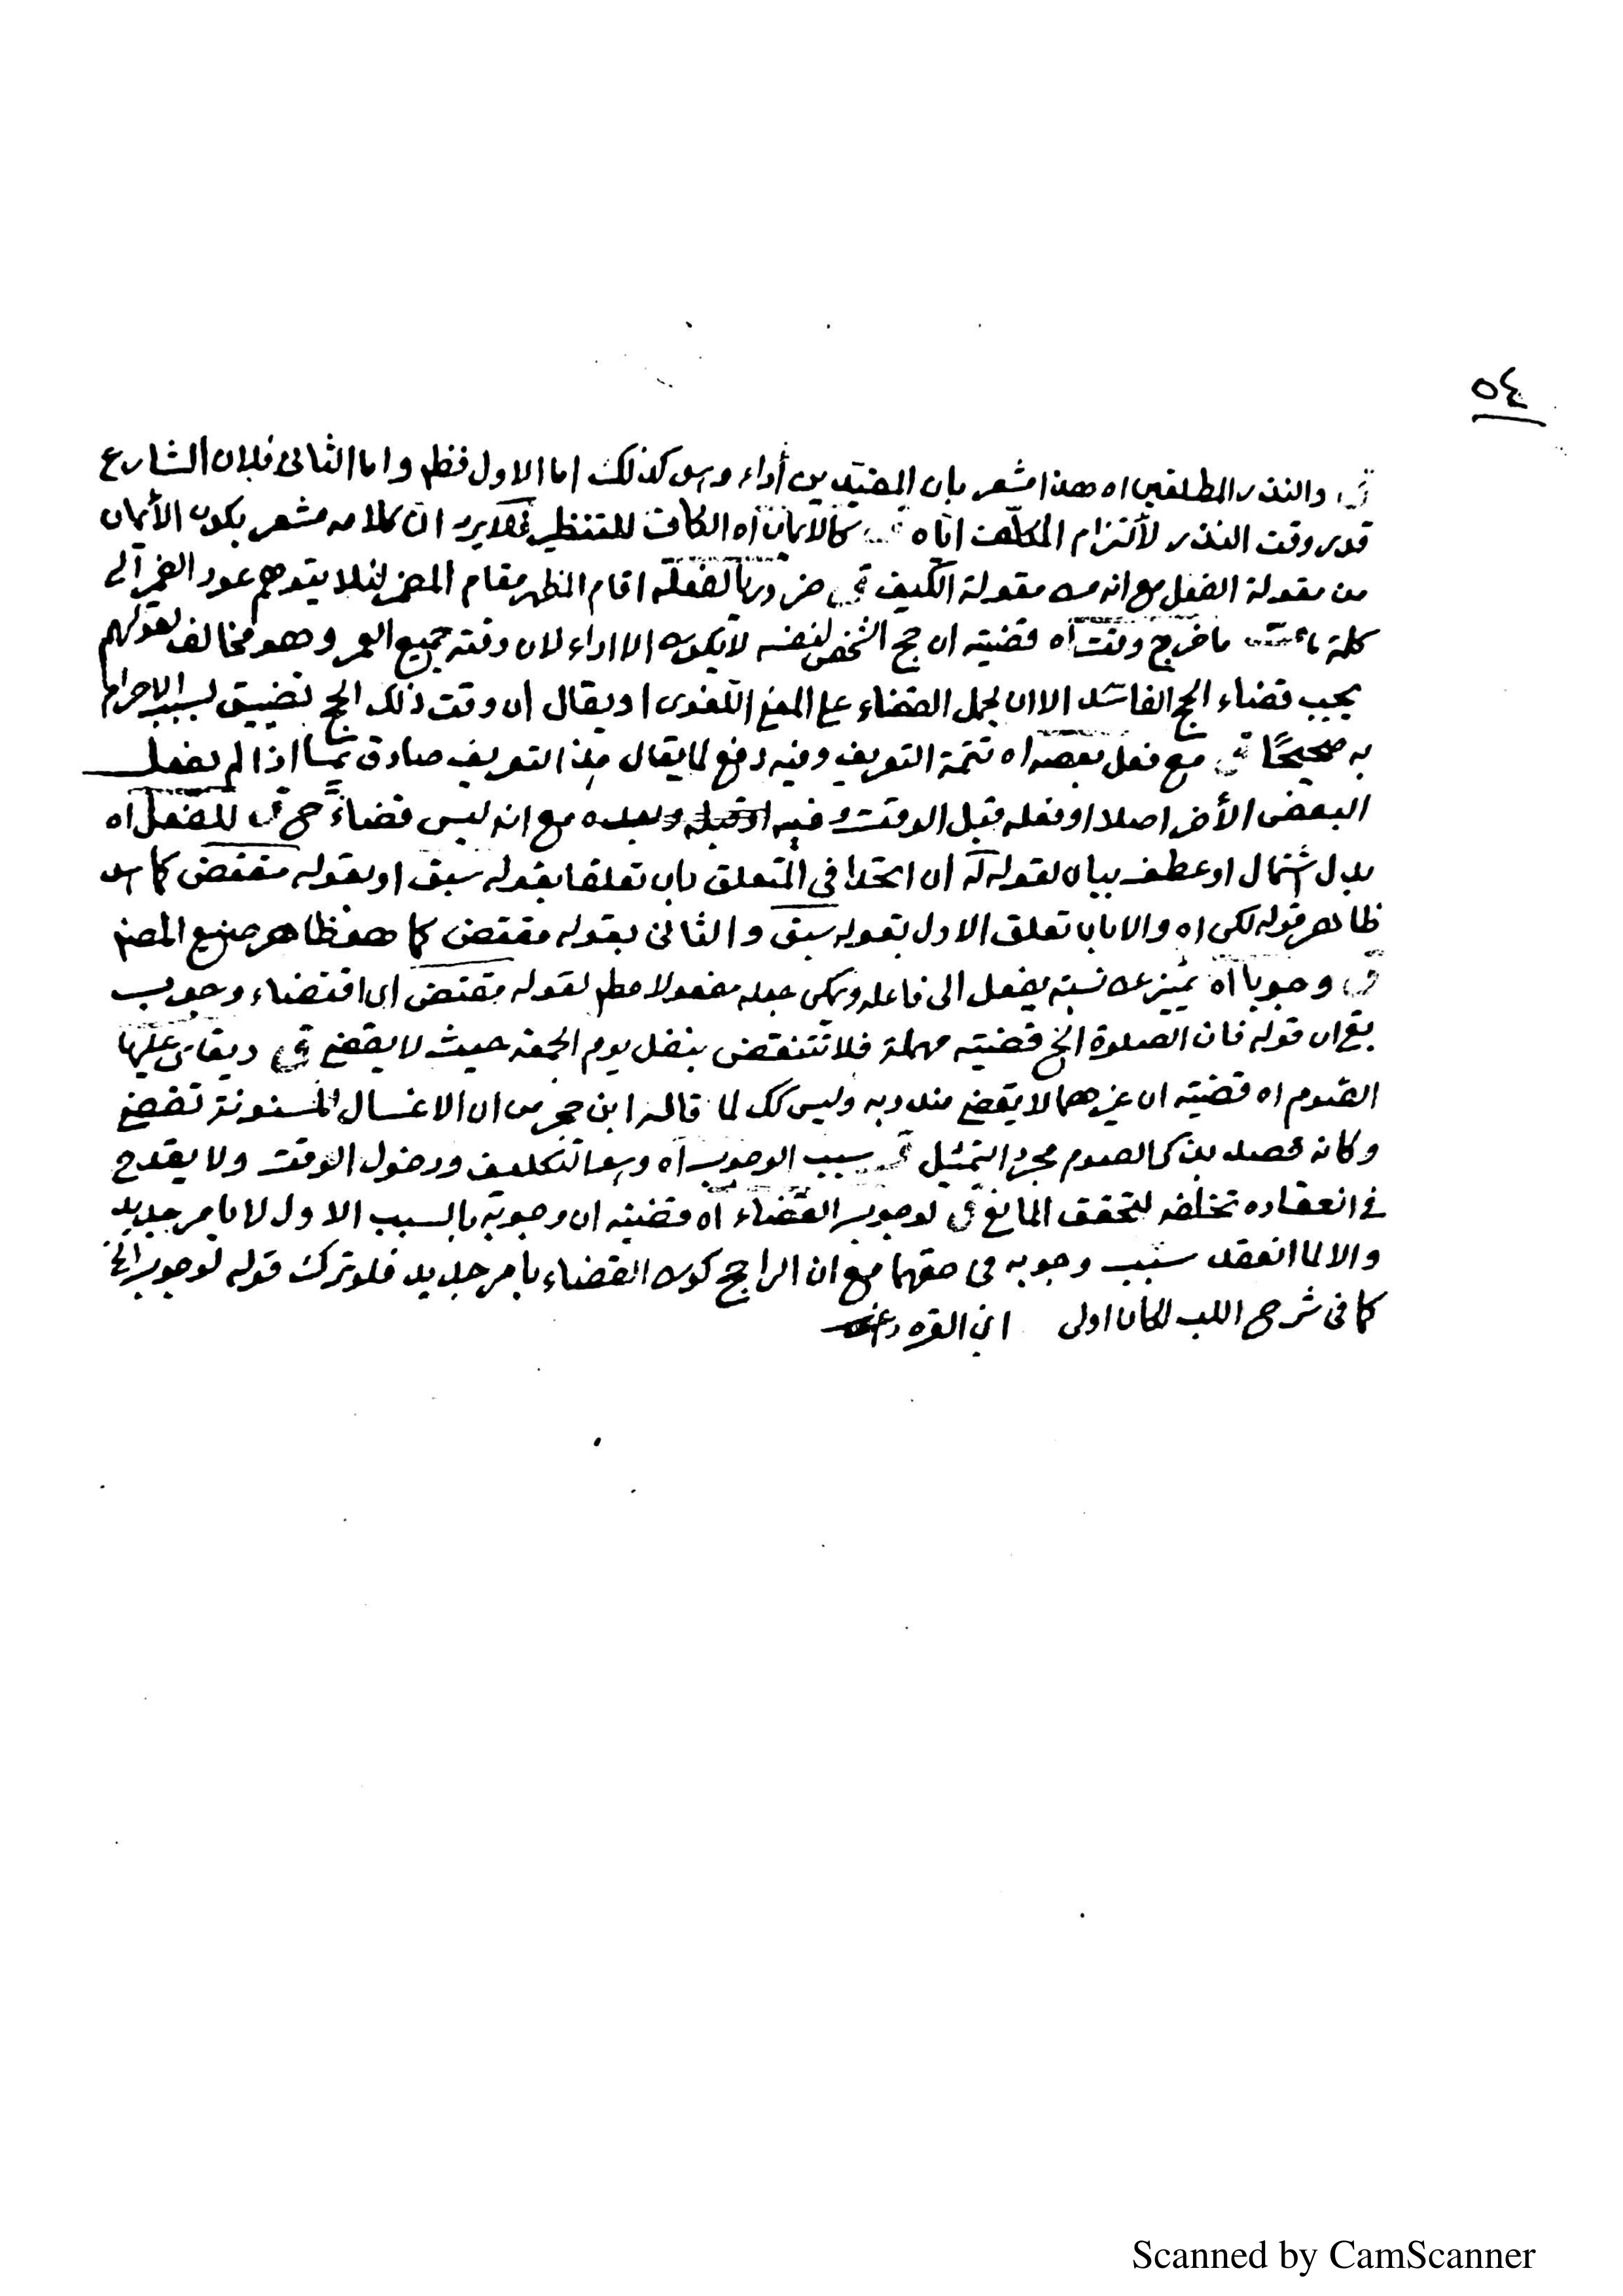 ٥٤
والنذر المطلقين اه هذا مشعر بان المقيدين أداء وليس كذلك اما الاول فظم واما الثانى فلان الشارع
قدر وقت النذر لالتزام المكلف اياه كالايمان اه الكاف للتنظير فلايرد ان كلامه مشعر بكون الأيمان
من مقولة الفعل مع انه من مقولة الكيف قى ضرورة لفعله اقام المظهر مقام المضمر لئلا يتوهم عود الضمير الى
كلة ما ما خرج وقت اه قضيته ان حج الشخص لنفسه لايكون الا اداء لان وقته جميع العمر وهو مخالف لقولهم
يجب قضاء الحج الفاسد الا ان يحمل القضاء على المعنى اللغوى او يقال ان وقت ذلك الحج تضييق بسبب الاحرام
به صحيحًا قى مع فعل بعضه اه تتمة التعريف وفيه دفع لما يقال هذا التعريف صادق بما اذا لم يفعل
البعض الأخر اصلا او فعله قبل الوقت و فيه وبعده مع انه ليس قضاءً قى للفعل اه
بدل اشتمال او عطف بيان لقوله له ان اتحدا فى المتعلق بان تعلقا بقوله سبق او بقوله مقتض كما هو
ظاهر قوله لكن اه والا بان تعلق الاول بقوله سبق والثانى بقوله مقتض كما هو ظاهر صنيع المصنم
قى وجوبا اه تمييز عن نسبة يفعل الى فاعله ويمكن جعله مفعولا مطم لقوله مقتض اى اقتضاء وجوب
بقى ان قوله فان الصلوة الخ قضيته مهملة فلا تنتقض بنفل يوم الجمعة حيث لا يقضى قى ويقاس عليها
الصوم اه قضيته ان غيرهما لا يقضى مندوبه وليس كك لما قاله ابن حجر من ان الاغسال المسنونة تقضى
وكانه قصد بذكر الصوم مجرد التمثيل قى سبب الوجوب اه وهو التكليف ودخول الوقت ولا يقدح
فى انعقاده تخلفه لتحقق المانع قى لوجوب القضاء اه قضيته ان وجوبه بالسبب الاول لا بامر جديد
والا لما انعقد سبب وجوبه فى حقهما مع ان الراجح كون القضاء بامر جديد فلو ترك قوله لوجوب الخ
كما فى شرح اللب لكان اولى ابن القره داغى
Scanned by CamScanner